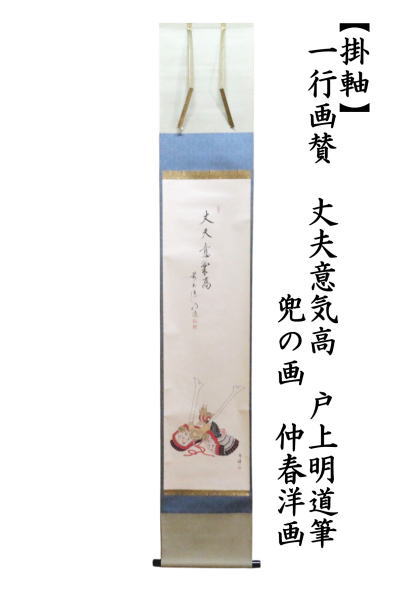 【掛軸】
一行画賛　丈夫意気高　戸上明道筆
兜の画　仲春洋画
丈夫意氣高